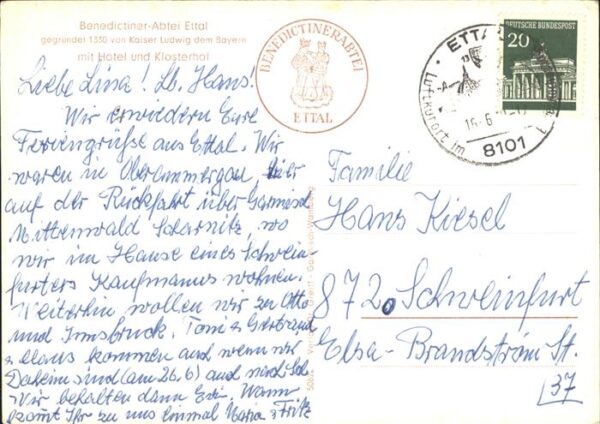 Benediktiner-Abtei Ettal
gegründet 1330 von Kaiser Ludwig dem Bayern
mit Hotel und Klosterhof
BENEDICTINERABTEI
ETTAL
DEUTSCHE BUNDESPOST
20
ETTAL
Luftkurort im
8101
Liebe Lina! Lb. Hans!
Wir erwiedern Eure
Feriengrüße aus Ettal. Wir
waren in Oberammergau
auf der Rückfahrt über Garmisch
Mittenwald Scharnitz, wo
wir im Hause eines Schwein-
furters Kaufmanns wohnen.
Weiterhin wollen wir zu Otto
und Innsbruck. Toni & Gertraud
& Klaus kommen auch wenn wir
Daheim sind (am 26.6) auch nach
Wir behalten dann Wann
kommt Ihr zu uns einmal Maria & Fritz
Familie
Hans Kiesel
8720 Schweinfurt
Elsa-Brandström St.
37